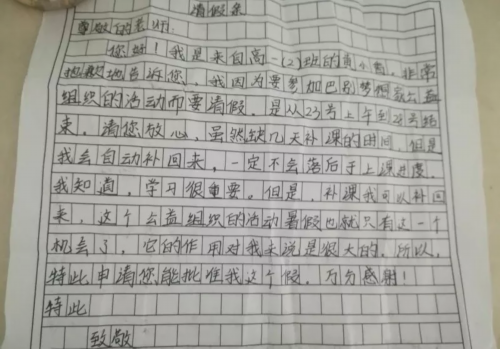 请假条
尊敬的老师:
您好!我是来自高一(2)班的黄，非常
抱歉地告诉您，我因为要参加巴别梦公益
组织的活动而要请假，是从23号上午至28号结
束，请您放心，虽然缺几天补课的时间，但是
我会自动补回来，一定不会落后于上课进度，
我知道，学习很重要，但是，补课我可以补回
来，这个公益组织的活动暑假也就只有这一个
机会了，它的作用对我来说是很大的，所以，
特此申请您能批准我这个假，万分感谢!
特此
致敬